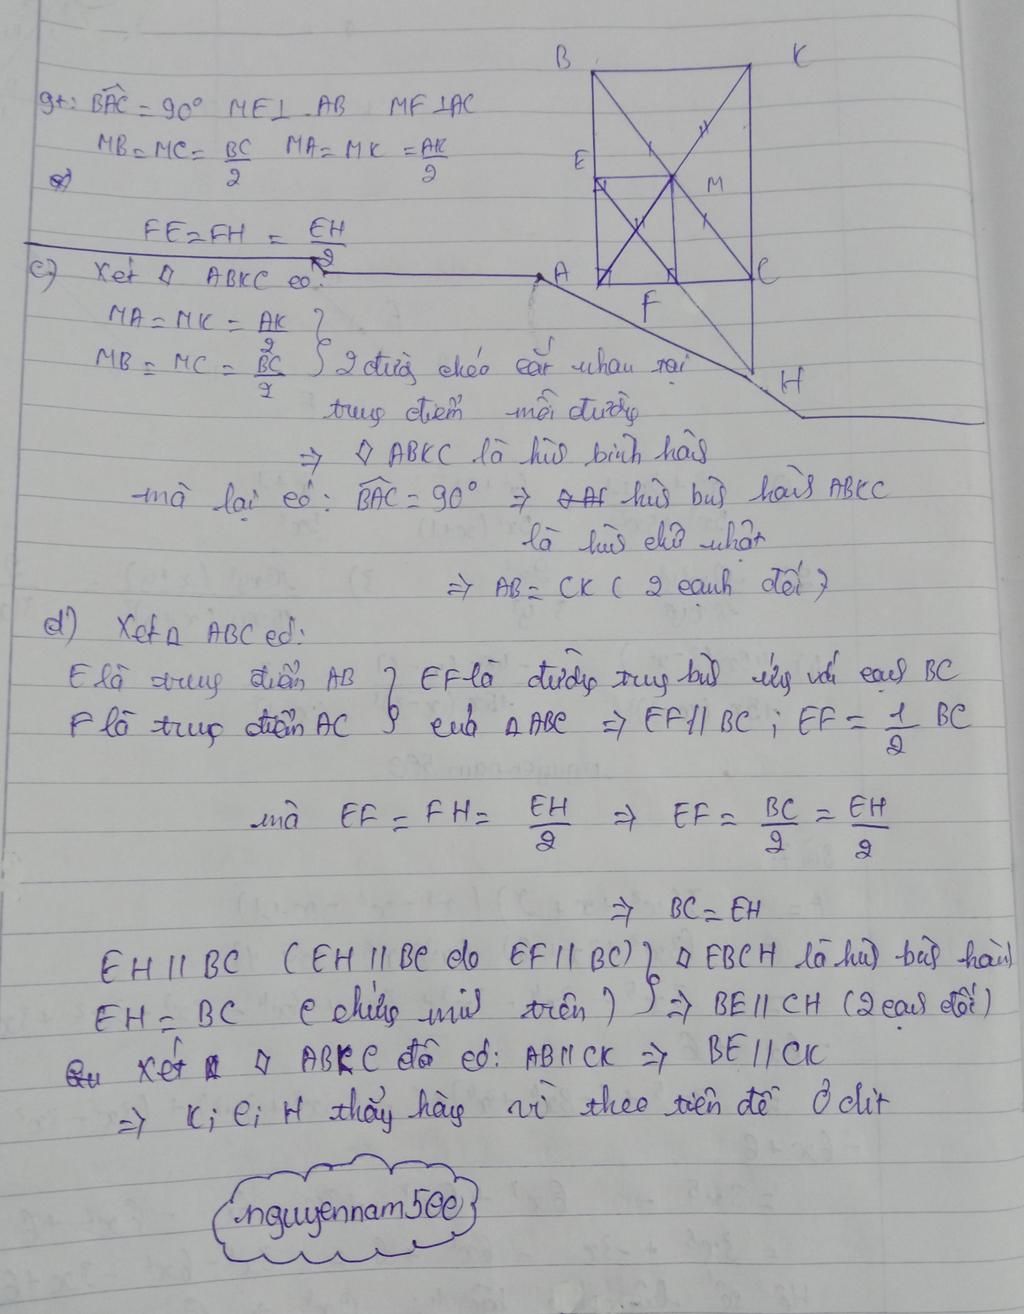 B K
gt: BAC = 90° ME⊥ AB MF⊥AC
MB=MC= BC/2 MA=MK = AK/2
E M
FE=FH = EH/2
A F C
c) Xét ◊ ABKC có:
MA=MK = AK/2
MB = MC = BC/2 } 2 đường chéo cắt nhau tại
H
trung điểm mỗi đường
⇒ ◊ ABKC là hình bình hành
mà lại có: BAC = 90° ⇒ hình bình hành ABKC
là hình chữ nhật
⇒ AB = CK ( 2 cạnh đối )
d) Xét △ ABC có:
E là trung điểm AB } EF là đường trung bình ứng với cạnh BC
F là trung điểm AC của △ABC ⇒ EF // BC ; EF = 1/2 BC
mà EF = FH = EH/2 ⇒ EF = BC/2 = EH/2
⇒ BC = EH
EH // BC ( EH // BC do EF // BC) } ◊ EBCH là hình bình hành
EH = BC ( chứng minh trên ) ⇒ BE // CH (2 cạnh đối)
Xét ◊ ABKC đã có: AB // CK ⇒ BE // CK
⇒ K; C; H thẳng hàng vì theo tiên đề Ơ clit
nguyennam5ee